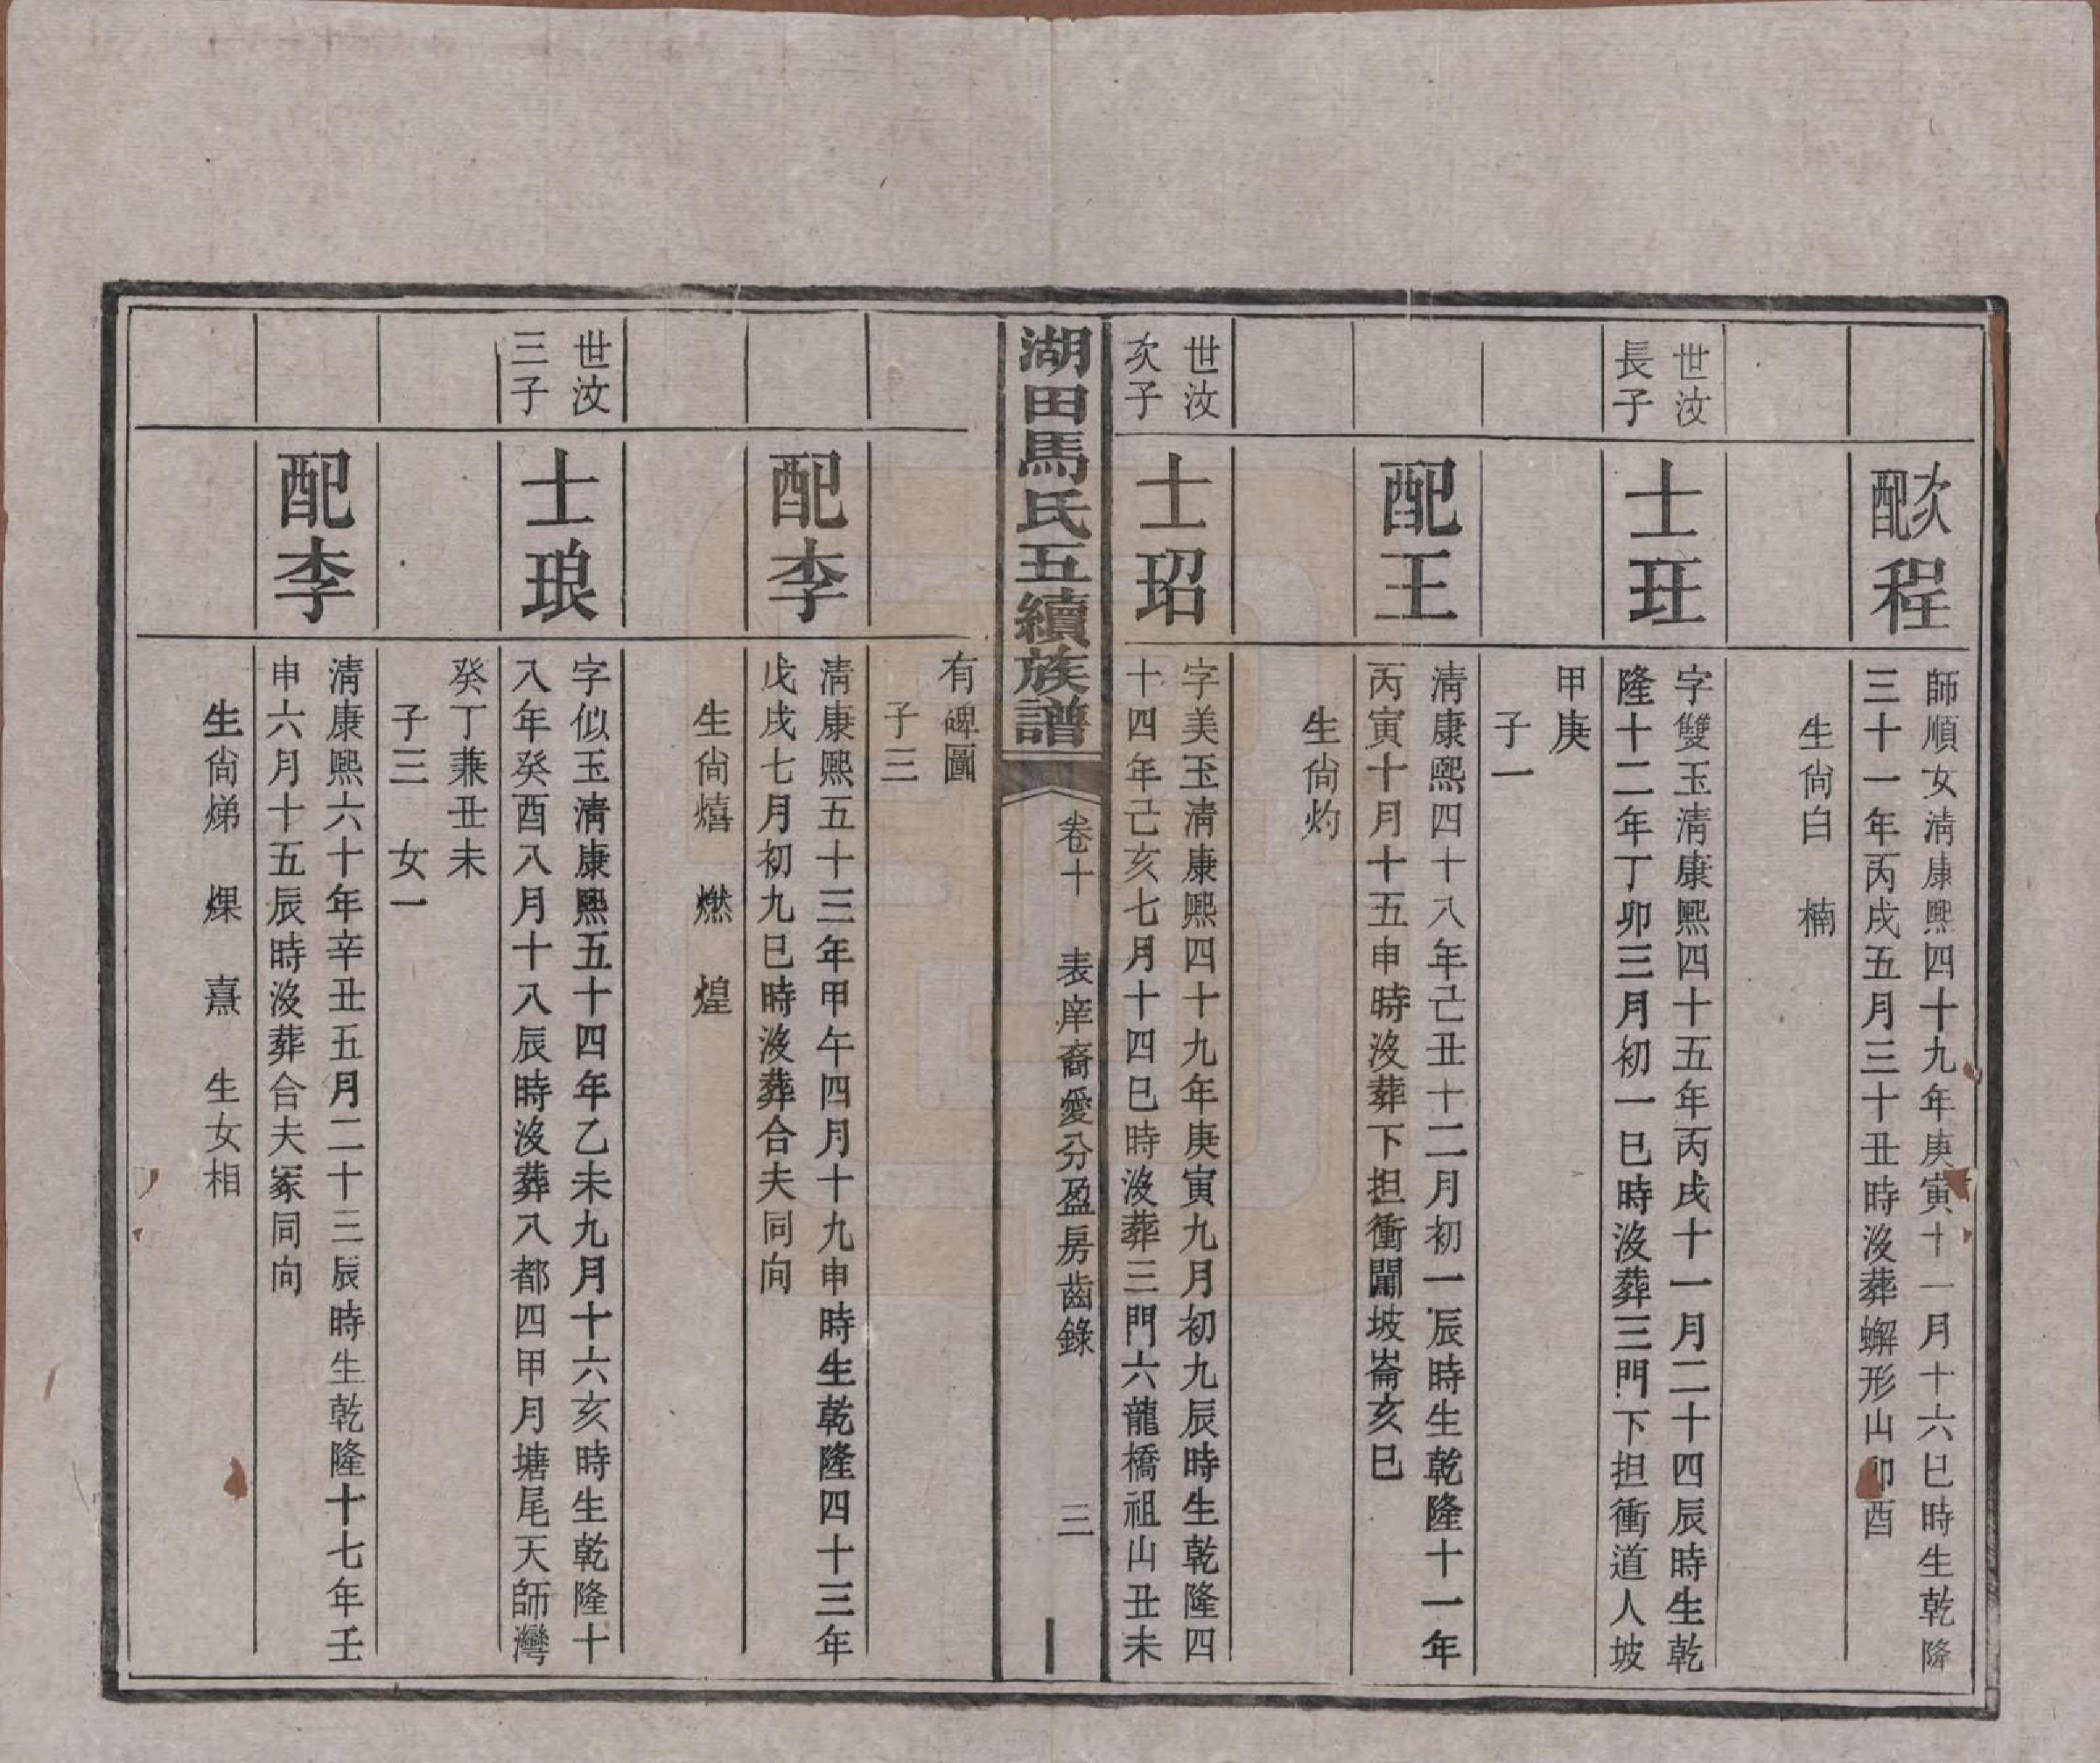 次配程
師順女淸康熙四十九年庚寅十一月十六巳時生乾隆
三十一年丙戌五月三十丑時沒葬蠏形山卯酉
生尙白　楠
世汶
長子
士玨
字雙玉淸康熙四十五年丙戌十一月二十四辰時生乾
隆十二年丁卯三月初一巳時沒葬三門下担衝道人坡
甲庚
子一
配王
淸康熙四十八年己丑十二月初一辰時生乾隆十一年
丙寅十月十五申時沒葬下担衝闈坡崙亥巳
生尙灼
世汶
次子
士玿
字美玉淸康熙四十九年庚寅九月初九辰時生乾隆四
十四年己亥七月十四巳時沒葬三門六龍橋祖山丑未
湖田馬氏五續族譜
卷十　表庠裔愛分盈房齒錄
三
有碑圖
子三
配李
淸康熙五十三年甲午四月十九申時生乾隆四十三年
戊戌七月初九巳時沒葬合夫同向
生尙熺　燃　煌
世汶
三子
士琅
字似玉淸康熙五十四年乙未九月十六亥時生乾隆十
八年癸酉八月十八辰時沒葬八都四甲月塘尾天師灣
癸丁兼丑未
子三　女一
配李
淸康熙六十年辛丑五月二十三辰時生乾隆十七年壬
申六月十五辰時沒葬合夫冢同向
生尙焍　㷄　熹　生女相